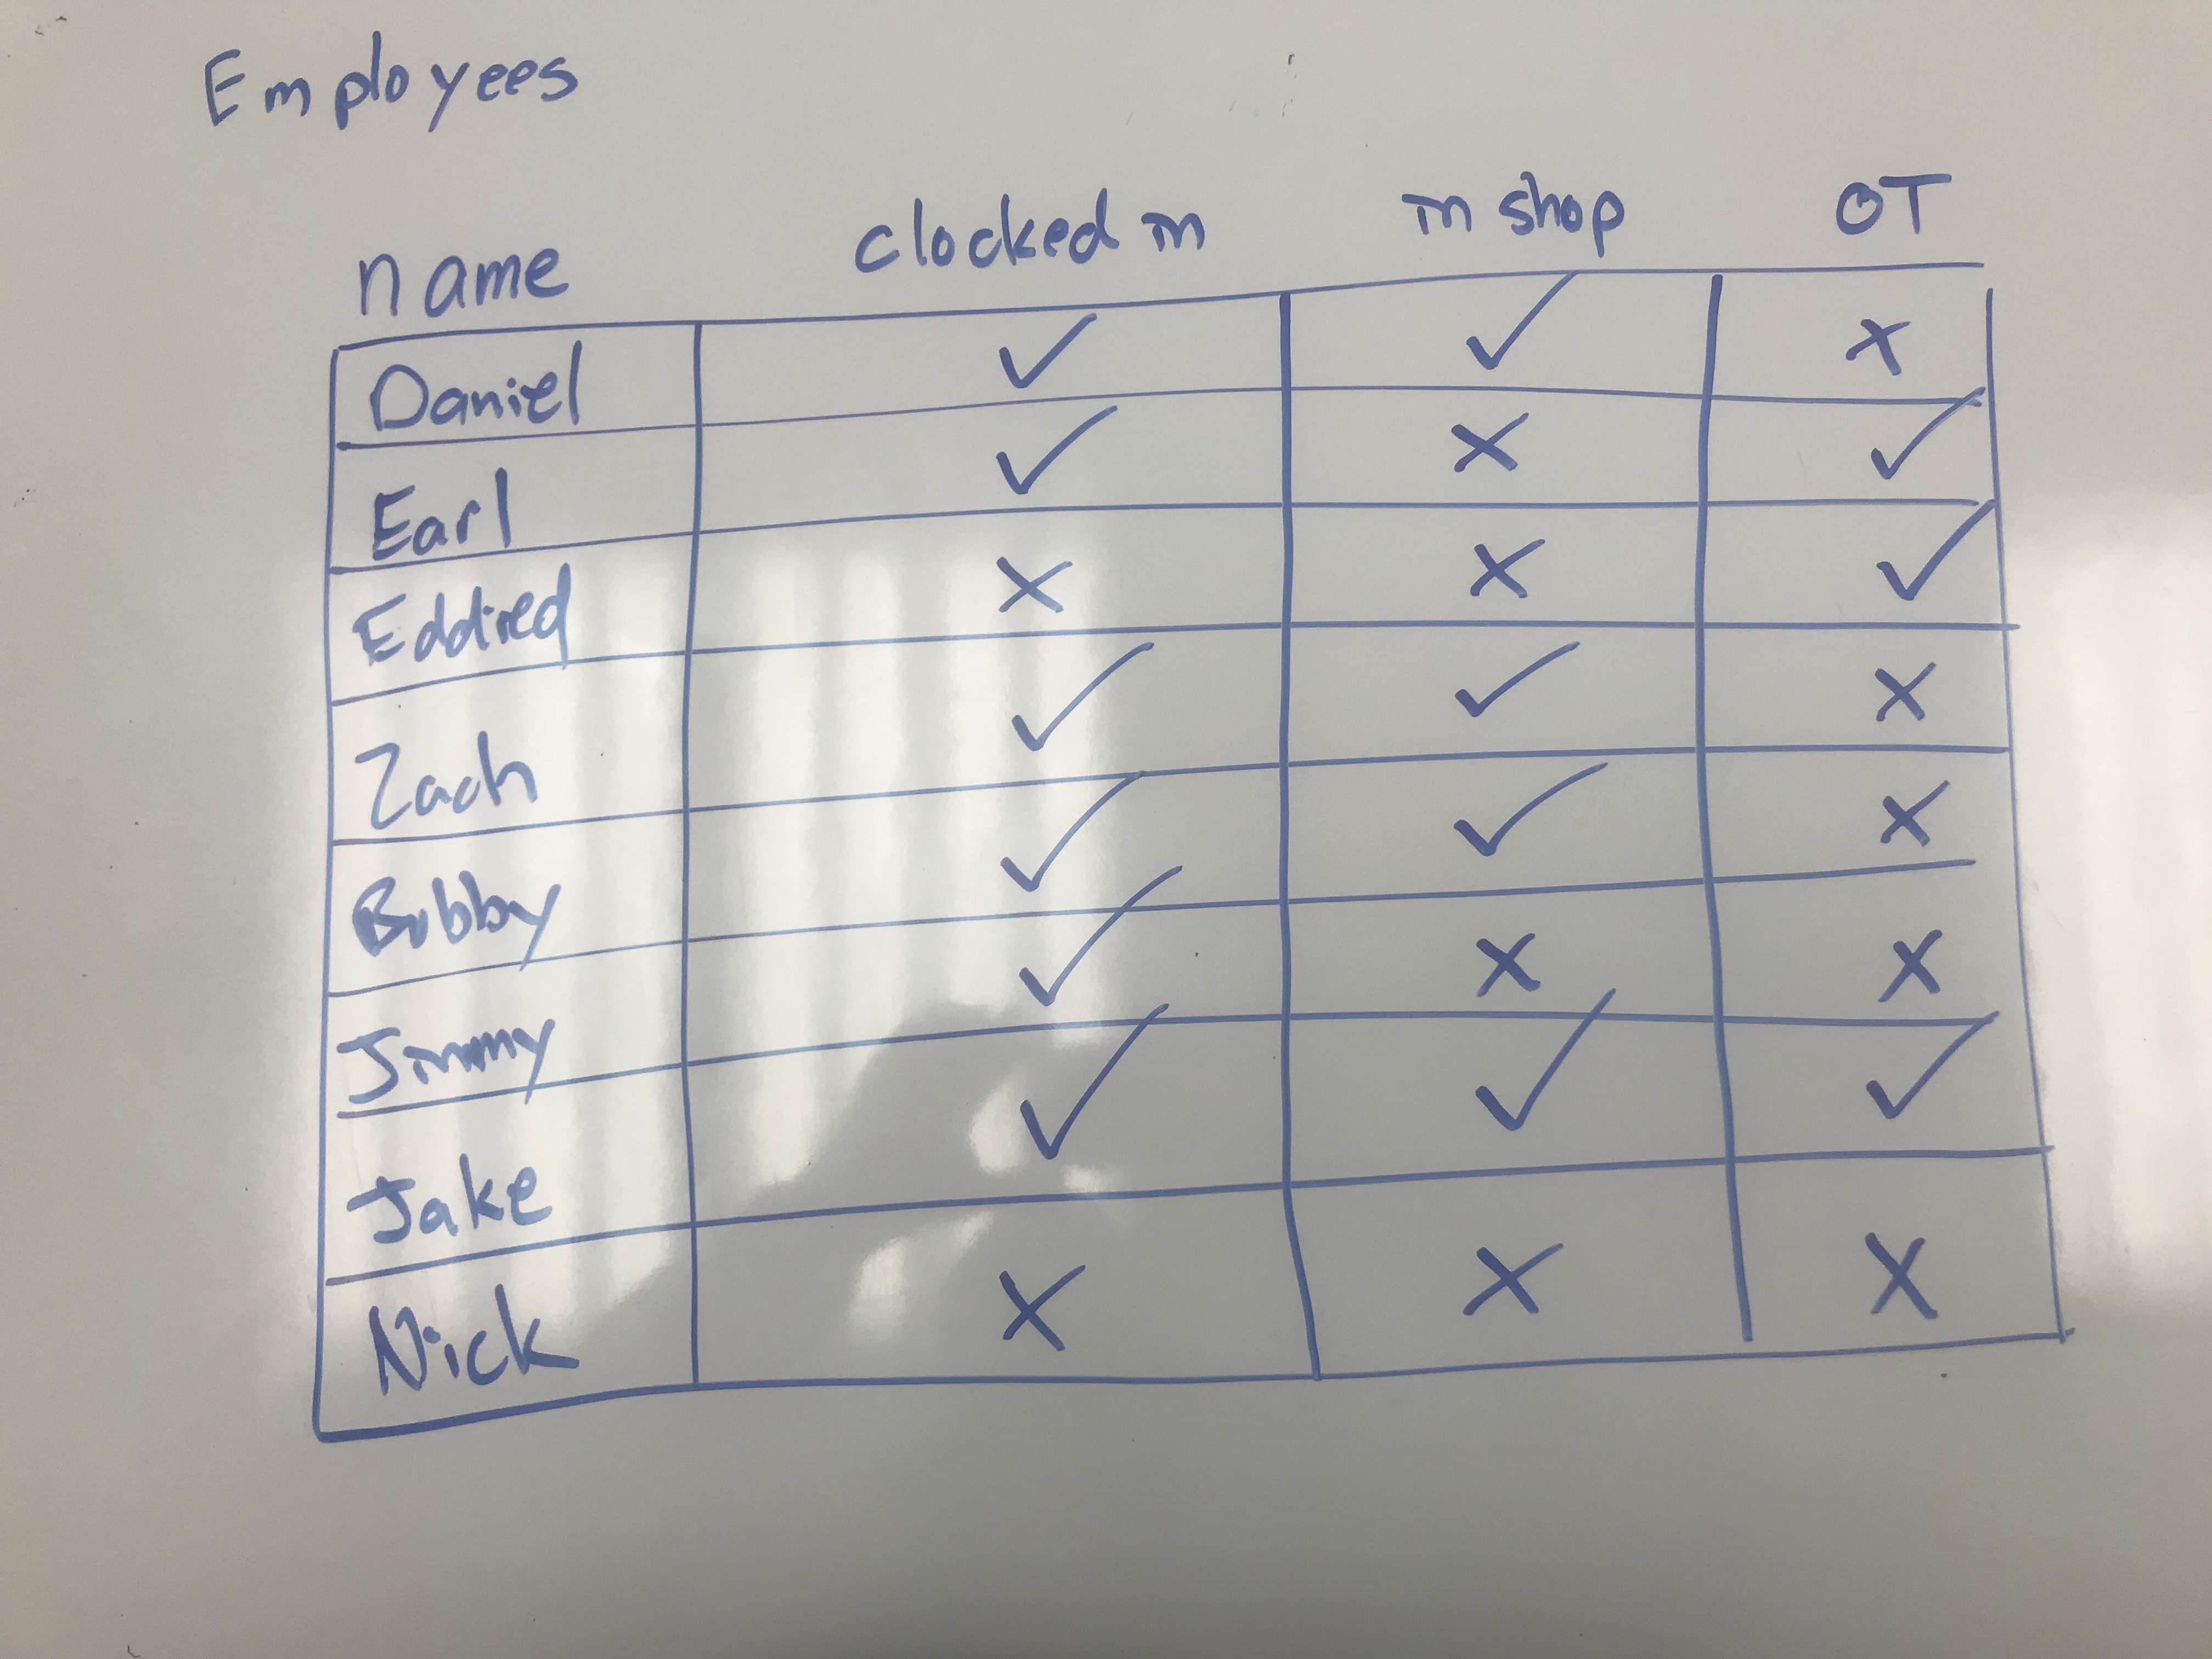 Employees
name clocked in in shop OT
Daniel ✓ ✓ x
Earl ✓ x ✓
Eddired x x ✓
Zach ✓ ✓ x
Bobby ✓ ✓ x
Jimmy ✓ x x
Jake ✓ ✓ ✓
Nick x x x